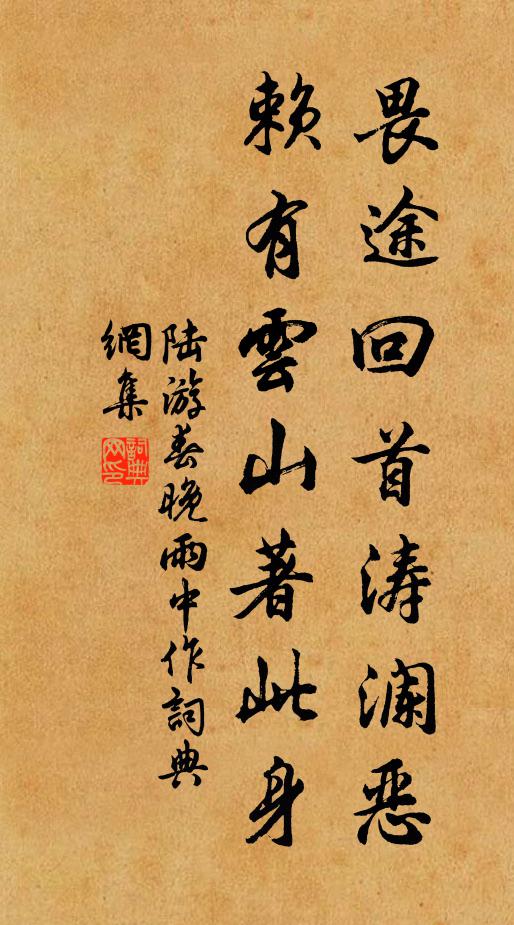 畏途回首涛澜恶
赖有雲山著此身
陆游春晚雨中作詞典
網集
詞典
网印